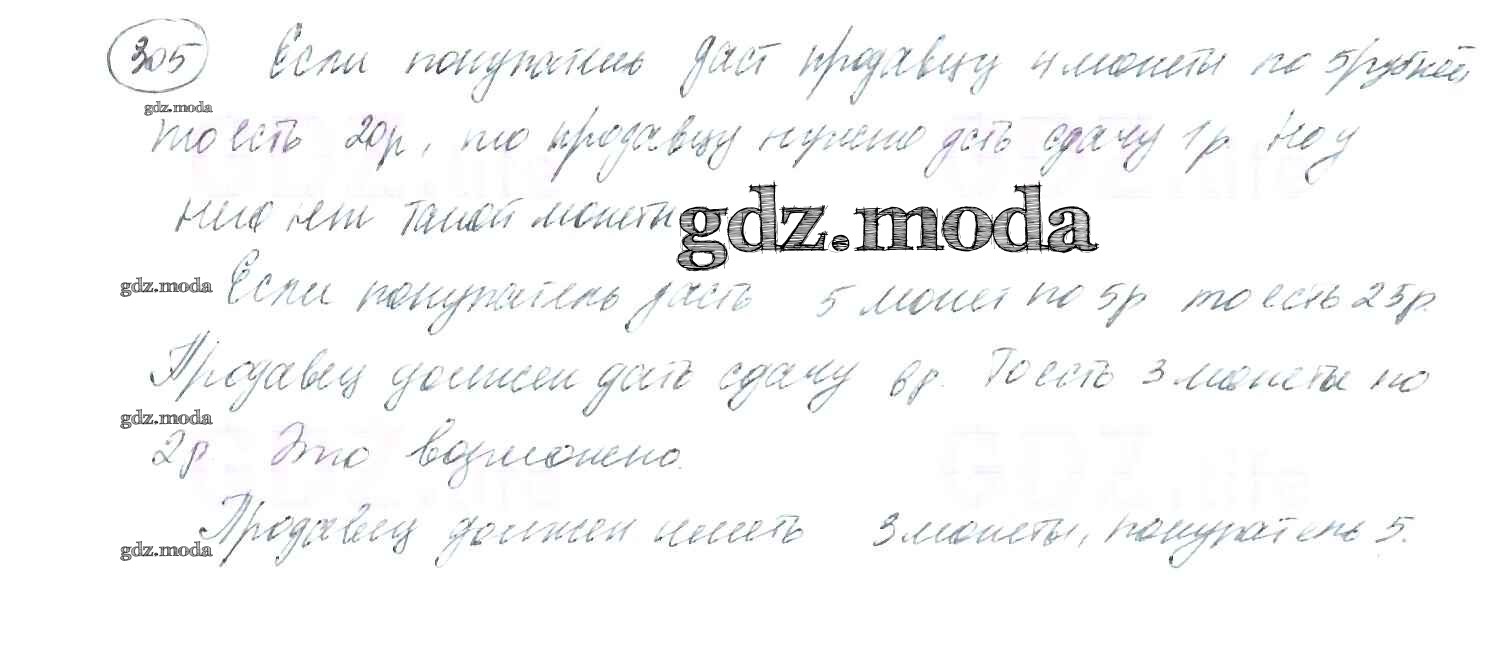 305 Если покупатель даст продавцу 4 монеты по 5 рублей
gdz.moda
то есть 20р, то продавцу нужно дать сдачу 1р. Но у
него нет такой монеты
gdz.moda
gdz.moda Если покупатель дасть 5 монет по 5р то есть 25р.
Продавец должен дать сдачу 6р. То есть 3 монеты по
gdz.moda
2р. Это возможно.
Продавец должен иметь 3 монеты, покупатель 5.
gdz.moda